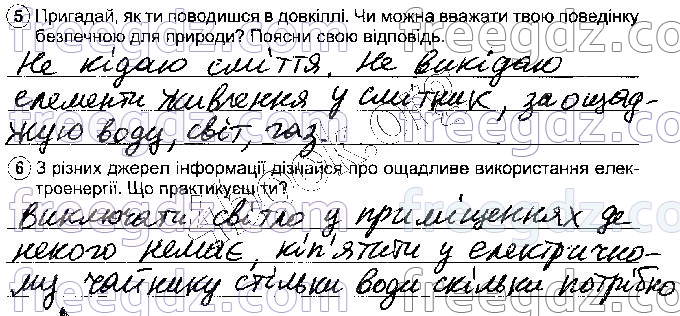 5 Пригадай, як ти поводишся в довкіллі. Чи можна вважати твою поведінку
безпечною для природи? Поясни свою відповідь.
Не кідаю сміття. Не викідаю
єлементи живлення у смітник, заощад-
жую воду, світ, газ.
6 З різних джерел інформації дізнайся про ощадливе використання елек-
троенергії. Що практикуєш ти?
Виключати світло у приміщеннях де
некого немає, кіп'ятити у електрично-
му чайнику стільки води скільки потрібно